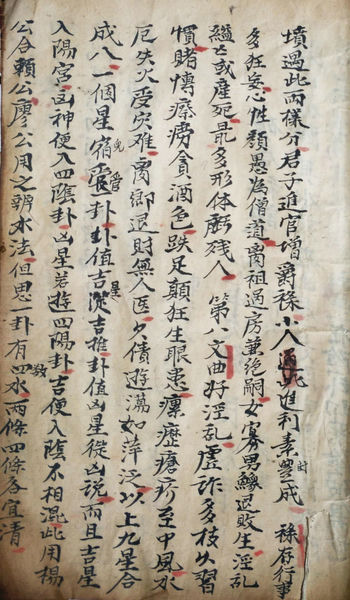 墳過此兩樣分君子進官增爵祿小人遇此進利素豐成 祿存行事
多狂妄心性頑愚為僧道离祖過房兼絶嗣女寡男鰥退敗生淫乱
縊亡或產死最多形体殘人 第八文曲好淫乱虛詐多枝頭習
慣賭慱癆癆貪酒色跌足顛狂生眼患瘰癧瘡疥至中風水
厄失火受灾难离鄉退財無人医欠債遊蕩如萍泛以上九星合
成八一個星宿管卦卦值吉星從吉推卦值凶星從凶說而且吉星
入陽宮凶神便入四陰卦凶星若遊四陽卦吉便入陰不相混此用楊
公合賴公廖公用之辨水法但思一卦有四水兩條四條各宜清